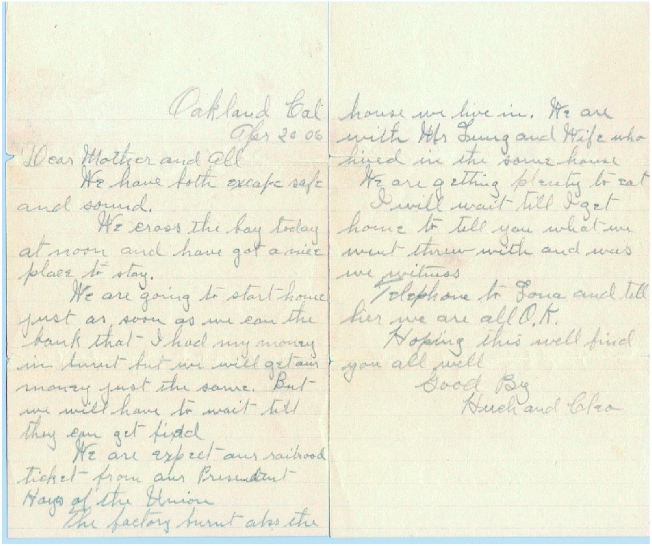 Oakland Cal
Apr 20 06
Dear Mother and all
We have both excape safe
and sound.
We cross the bay today
at noon and have got a nice
place to stay.
We are going to start home
just as soon as we can the
bank that I had my money
in burnt but we will get our
money just the same. But
we will have to wait till
they can get fixed
We are expect our railroad
ticket from our President
Hays of the Union
The factory burnt also the
house we live in. We are
with Mr and Wife who
lived in the same house
We are getting plenty to eat
I will wait till I get
home to tell you what we
went threw with and was
we witness
Telephone to and tell
her we are all O.K.
Hoping this well find
you all well
Good By
and Cleo